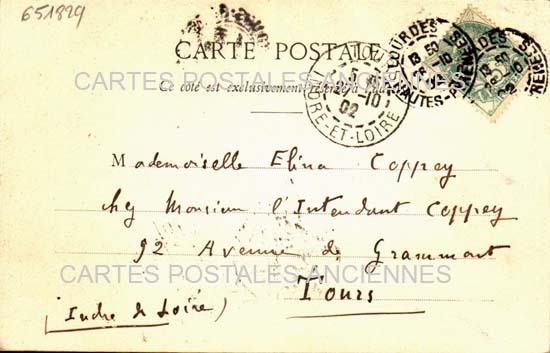 651829
CARTE POSTALE
CARTES POSTALES ANCIENNES
Ce côté est exclusivement réservé à
LOURDES
13 50
HAUTES-PYRÉNÉES
LOURDES
13 50
INDRE-ET-LOIRE
02
Mademoiselle Elina Coppey
chez Monsieur l'Intendant Coppey
92 Avenue de Grammont
CARTES POSTALES ANCIENNES
Tours
(Indre & Loire)